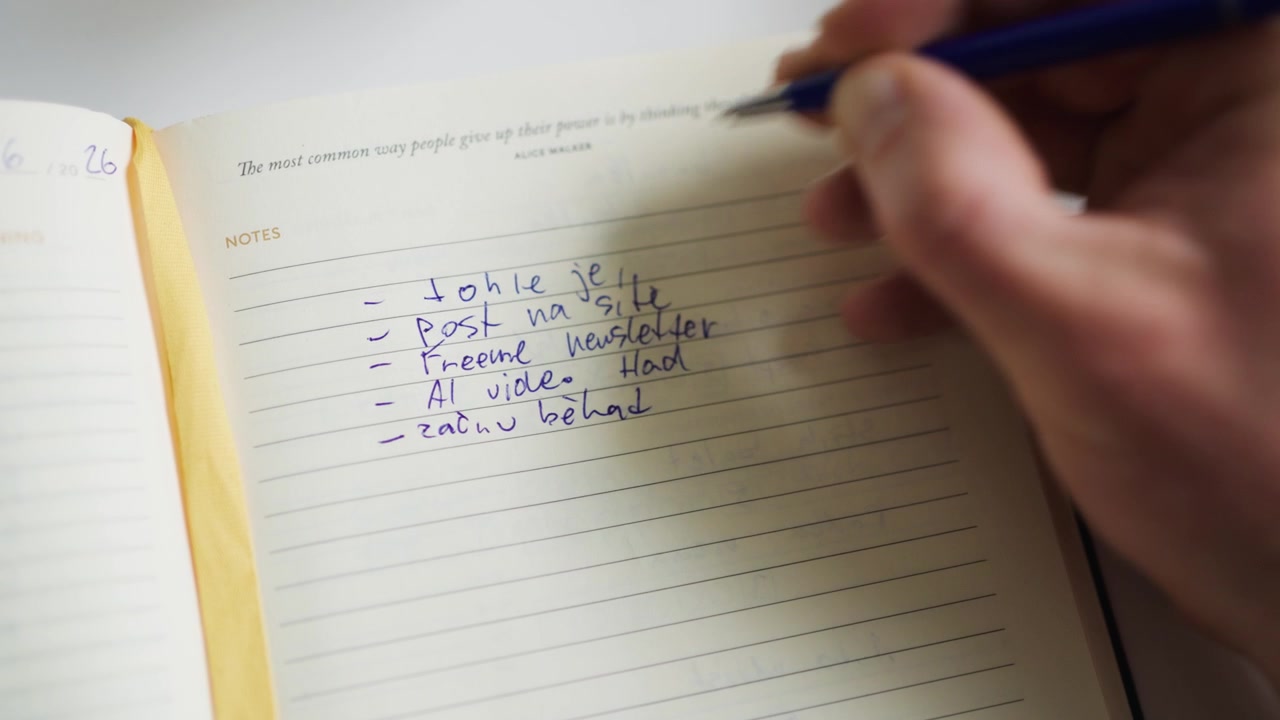 6 / 20 26
The most common way people give up their power is by thinking they
ALICE WALKER
NOTES
- tohle je
- Post na sítě
- Freeme newsletter
- AI video Had
- začnu běhat